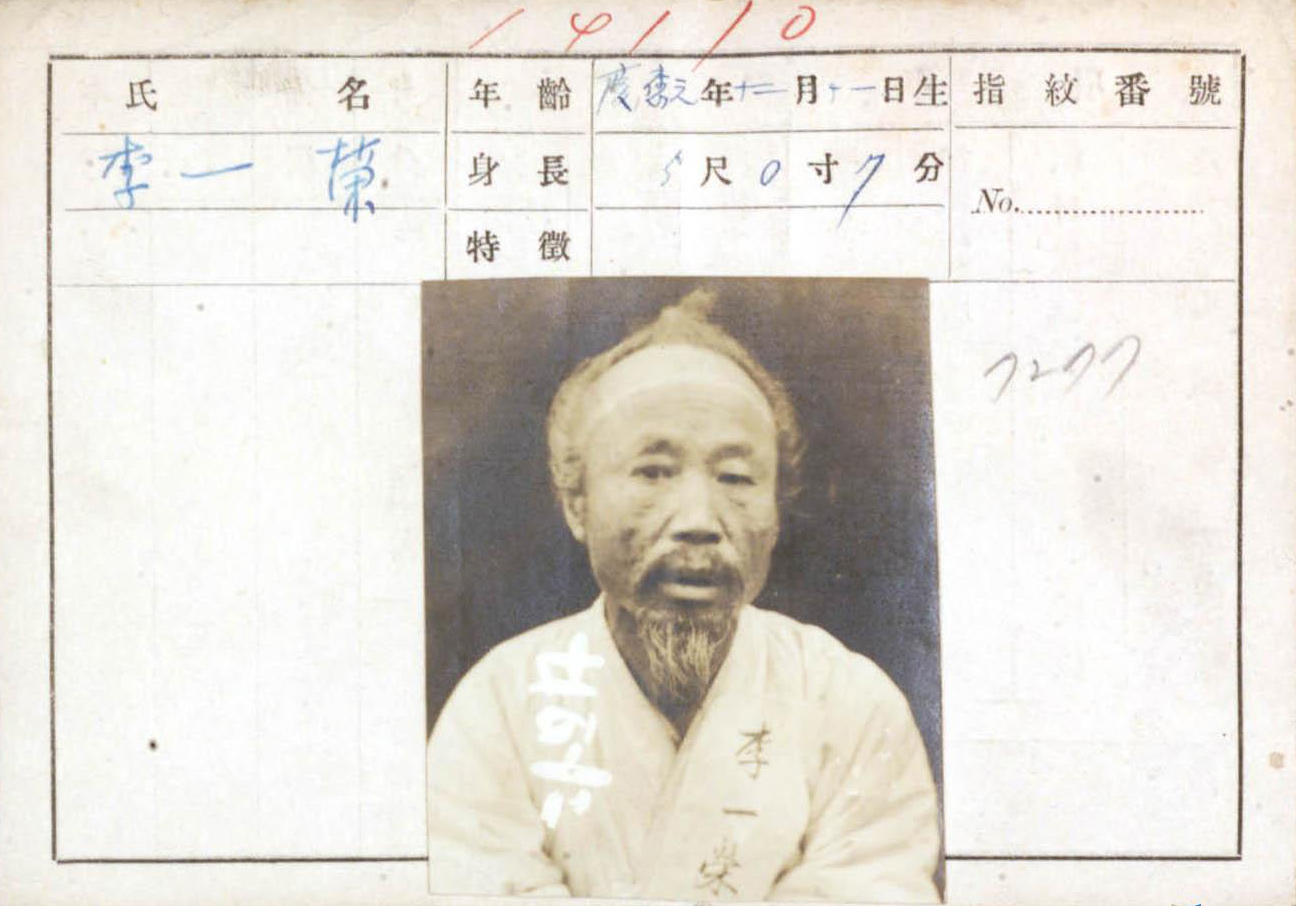 14110
氏名 年齡 慶應元年十二月十一日生 指紋番號
李一榮 身長 5尺0寸7分 No.
特徵
7277
李一栄